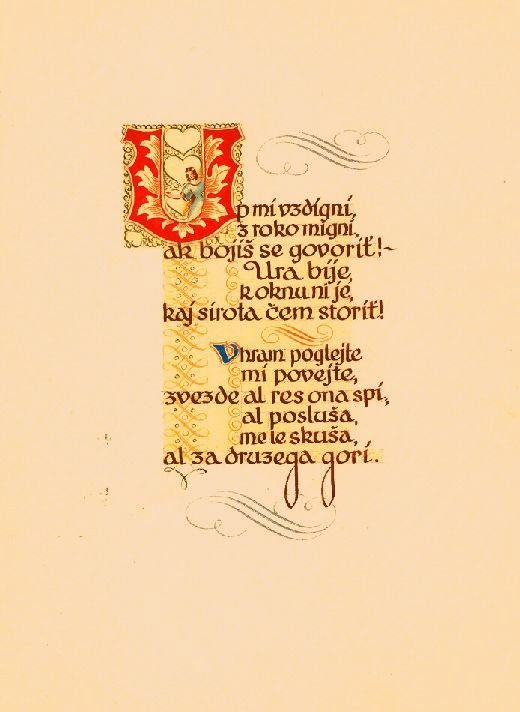 Up mi vzdigni,
z roko migni,
ak bojiš se govorit'!~
Ura bije,
k oknu ni je,
kaj sirota čem storit'!
V hram poglejte
mi povejte,
zvezde al res ona spi,
al posluša,
me le skuša,
al za druzega gori.